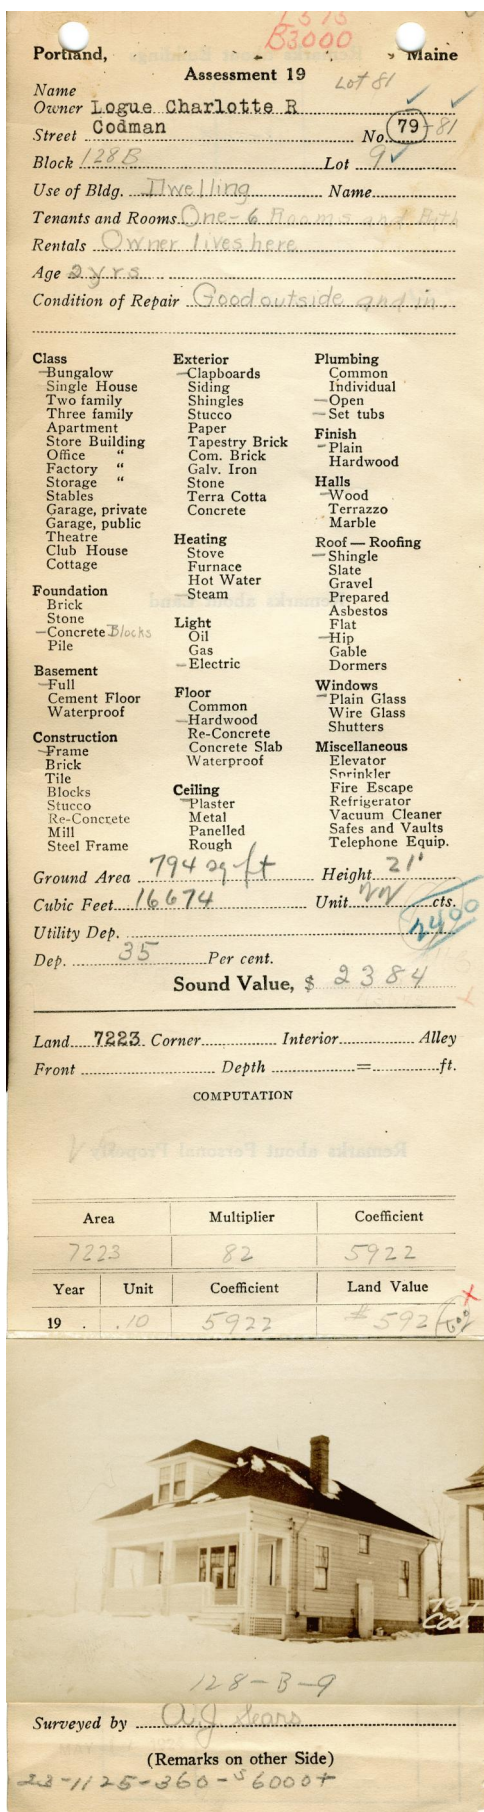 B3000
Portland, Maine
Assessment 19
Lot 81
Name
Owner Logue Charlotte R
Street Codman No. 79-81
Block 128B Lot 9
Use of Bldg. Dwelling Name
Tenants and Rooms One-6 Rooms and Bath
Rentals Owner lives here
Age 2 yrs
Condition of Repair Good outside and in.
Class
Bungalow
Single House
Two family
Three family
Apartment
Store Building
Office "
Factory "
Storage "
Stables
Garage, private
Garage, public
Theatre
Club House
Cottage
Foundation
Brick
Stone
Concrete Blocks
Pile
Basement
Full
Cement Floor
Waterproof
Construction
Frame
Brick
Tile
Blocks
Stucco
Re-Concrete
Mill
Steel Frame
Exterior
Clapboards
Siding
Shingles
Stucco
Paper
Tapestry Brick
Com. Brick
Galv. Iron
Stone
Terra Cotta
Concrete
Heating
Stove
Furnace
Hot Water
Steam
Light
Oil
Gas
Electric
Floor
Common
Hardwood
Re-Concrete
Concrete Slab
Waterproof
Ceiling
Plaster
Metal
Panelled
Rough
Plumbing
Common
Individual
Open
Set tubs
Finish
Plain
Hardwood
Halls
Wood
Terrazzo
Marble
Roof — Roofing
Shingle
Slate
Gravel
Prepared
Asbestos
Flat
Hip
Gable
Dormers
Windows
Plain Glass
Wire Glass
Shutters
Miscellaneous
Elevator
Sprinkler
Fire Escape
Refrigerator
Vacuum Cleaner
Safes and Vaults
Telephone Equip.
Ground Area 794 sq ft Height 21'
Cubic Feet 16674 Unit 22 cts.
2400
Utility Dep.
Dep. 35 Per cent.
Sound Value, $ 2384
Land 7223 Corner Interior Alley
Front Depth = ft.
COMPUTATION
Area Multiplier Coefficient
7223 82 5922
Year Unit Coefficient Land Value
19 . .10 5922 $592 600
79
Cod
128-B-9
Surveyed by A J Sears
(Remarks on other Side)
23-1125-360-$6000+